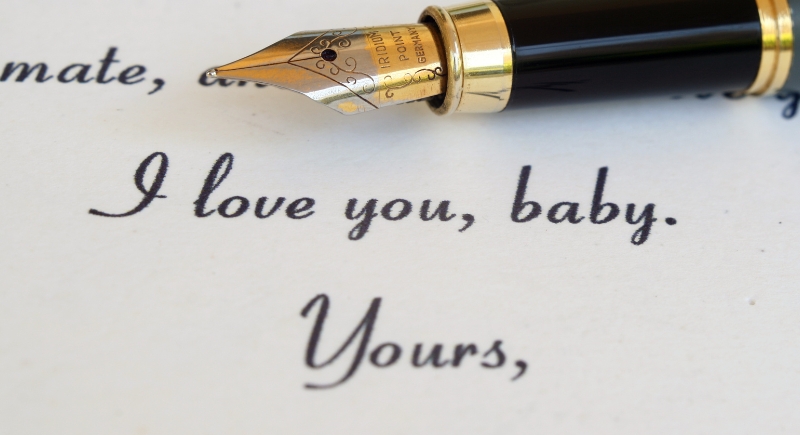 mate, an
I love you, baby.
Yours,
IRIDIUM
POINT
GERMANY